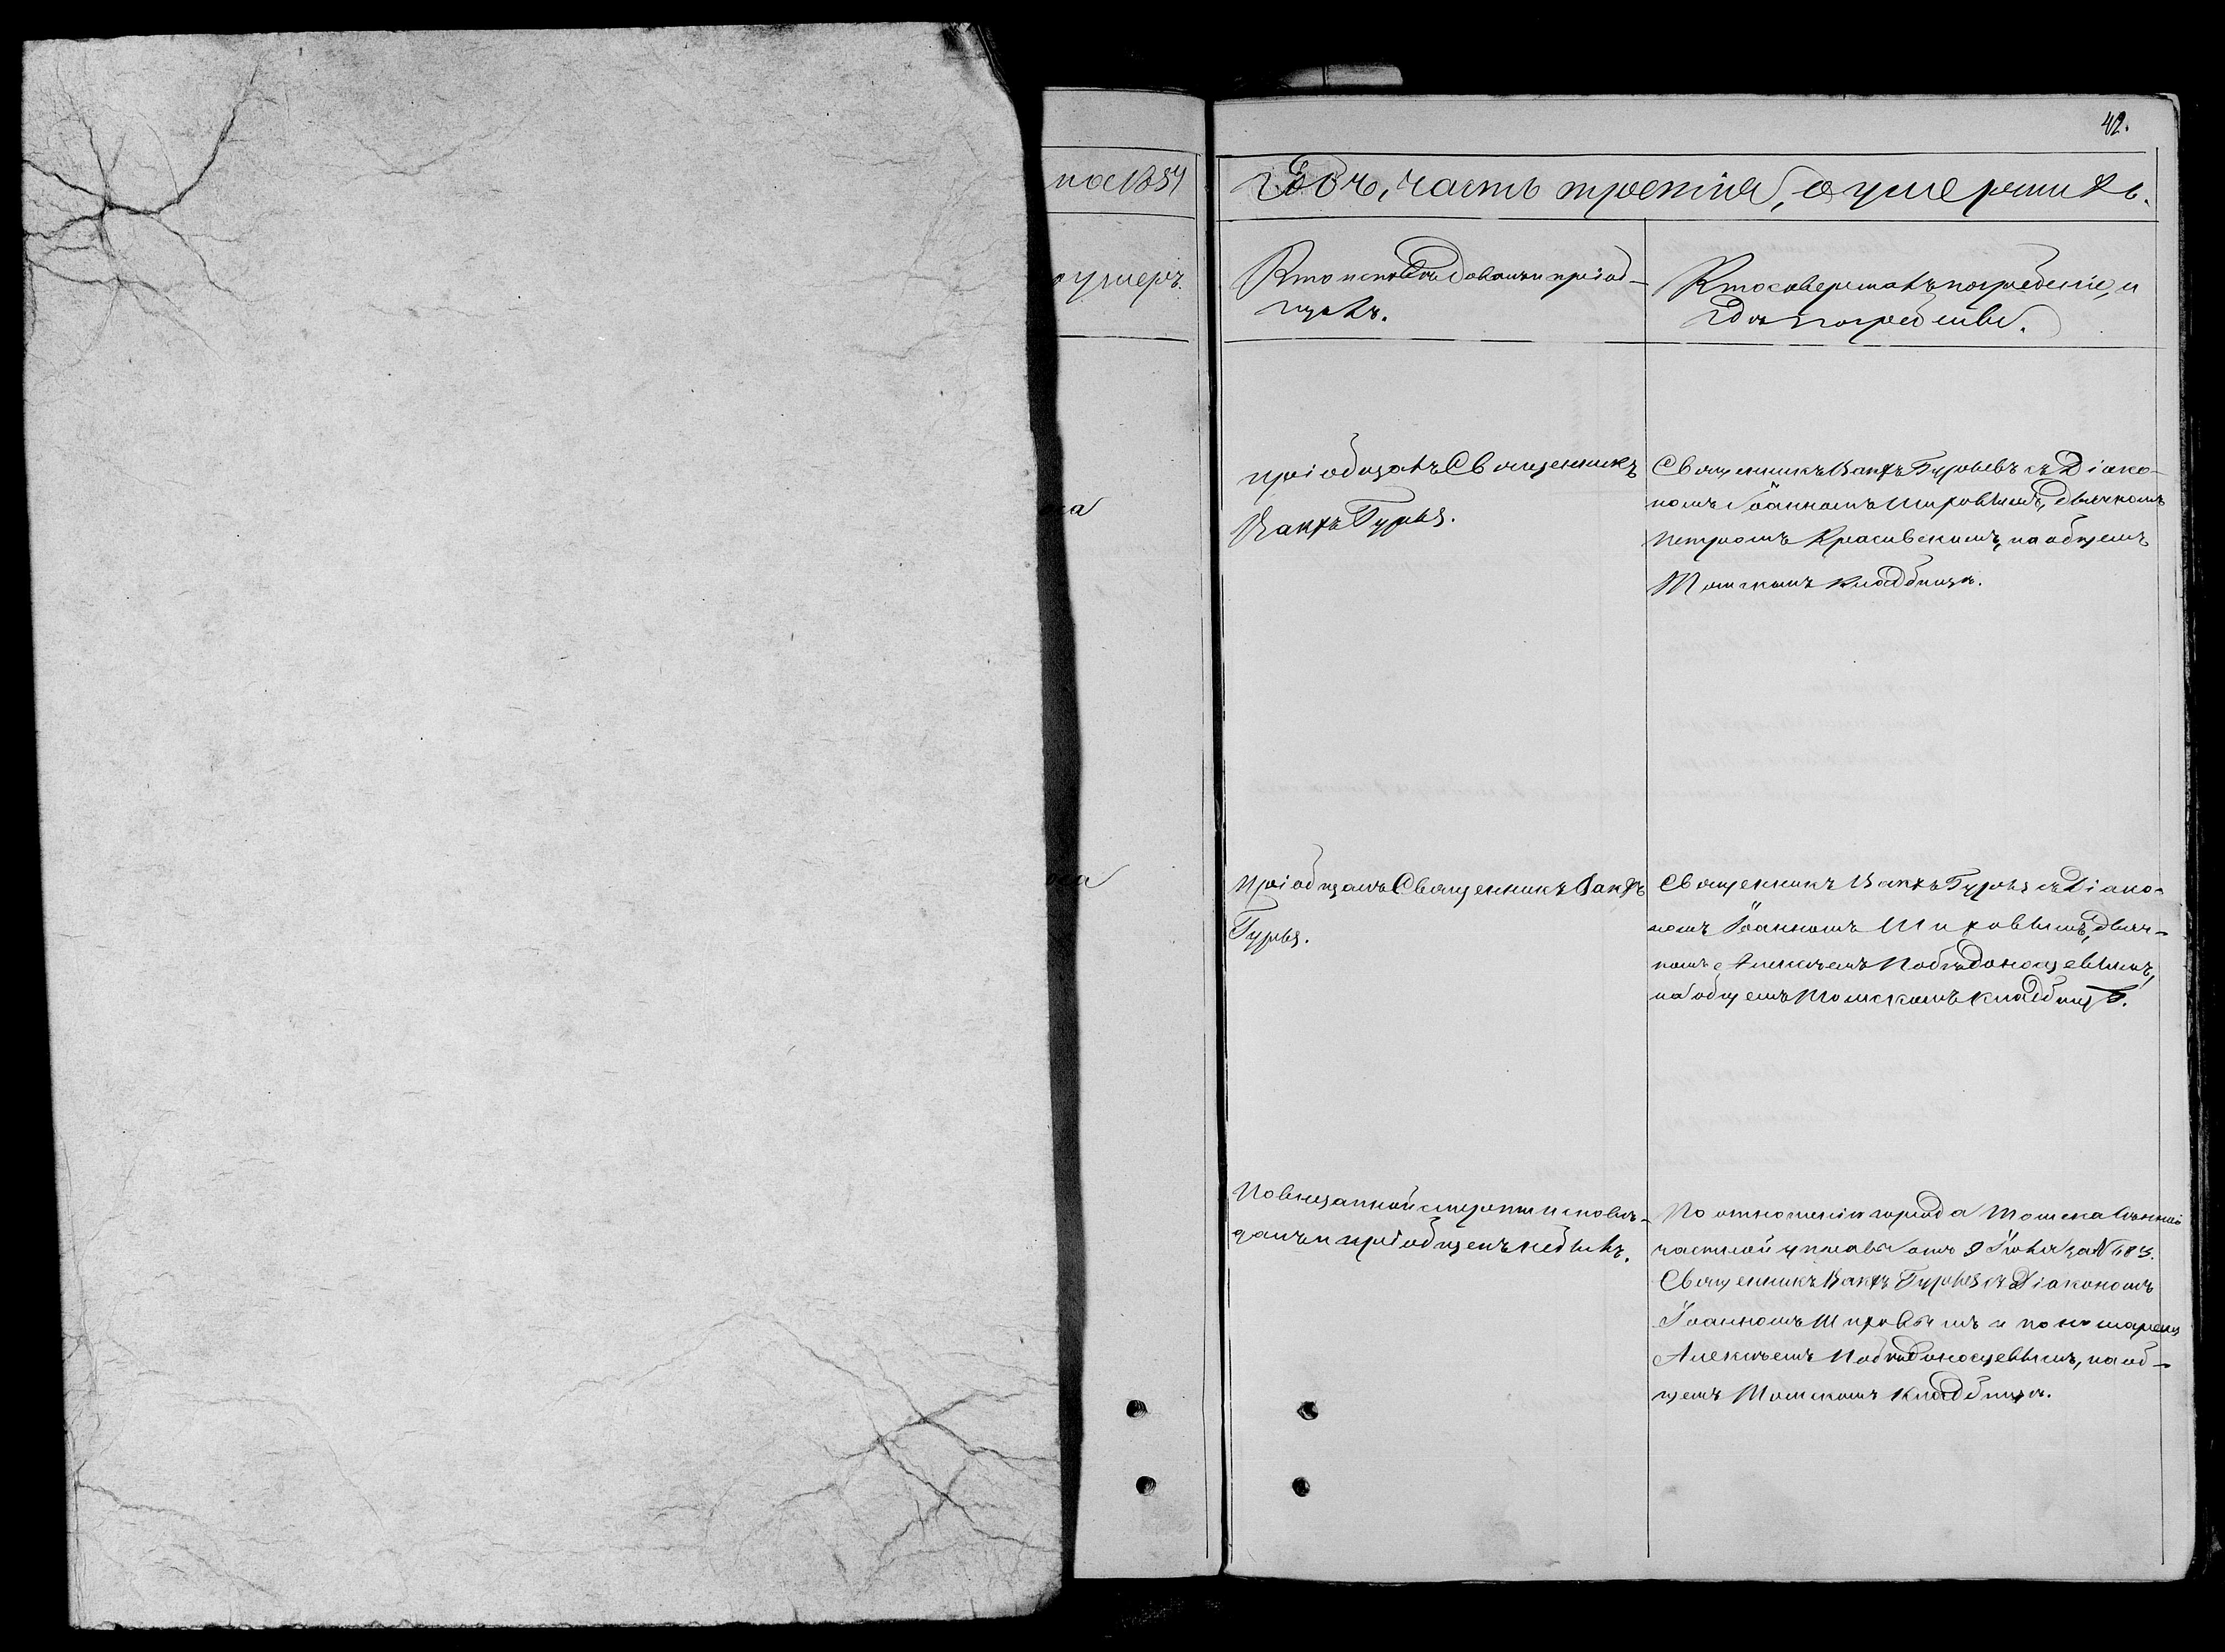 42.
на 1854
Годъ, часть третія, о умершихъ.
умеръ.
Кто исповѣдовалъ и пріоб-
щалъ.
Кто совершалъ погребеніе, и
гдѣ погребены.
пріобщалъ Священникъ
Вакхъ Гурьевъ.
Священникъ Вакхъ Гурьевъ съ Діако-
номъ Іоанномъ Шировымъ, дьячкомъ
Петромъ Красивскимъ, на общемъ
Томскомъ кладбищѣ.
Пріобщалъ Священникъ Вакхъ
Гурьевъ.
Священникъ Вакхъ Гурьевъ съ Діако-
номъ Іоанномъ Шировымъ, дьяч-
комъ Алексѣемъ Побѣдоносцевымъ,
на общемъ Томскомъ кладбищѣ.
По внезапной смерти исповѣ-
данъ и пріобщенъ небылъ.
По отношенію города Томска
частной управы отъ 9 Іюня за № 183.
Священникъ Вакхъ Гурьевъ съ Діакономъ
Іоанномъ Шировымъ и пономаремъ
Алексѣемъ Побѣдоносцевымъ, на об-
щемъ Томскомъ кладбищѣ.